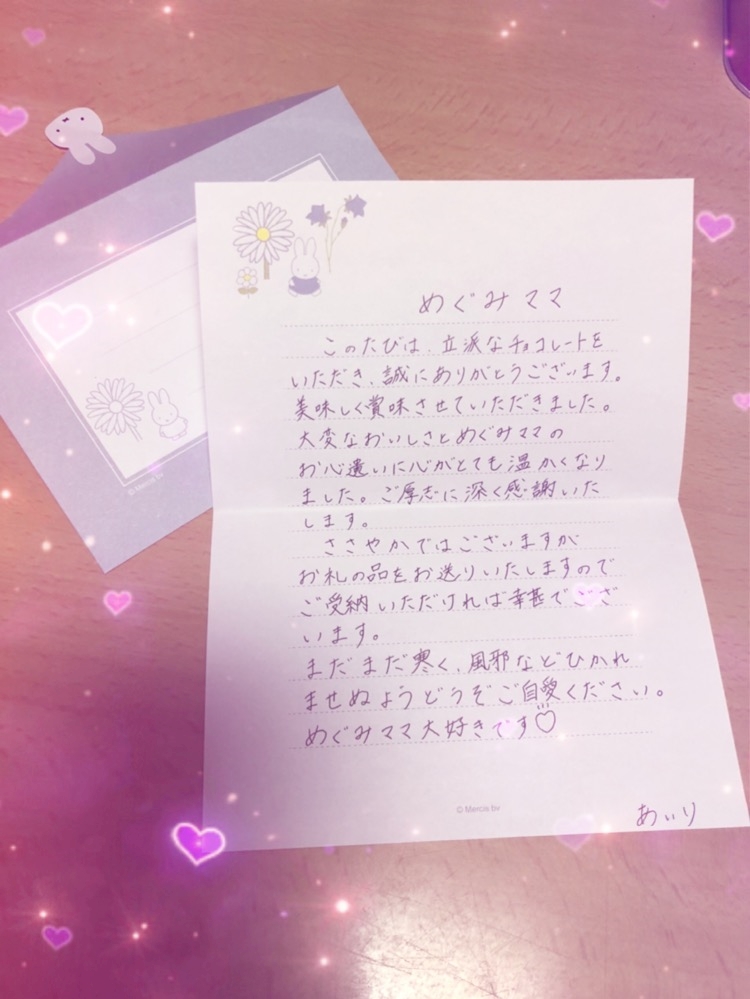 めぐみママ
このたびは、立派なチョコレートを
いただき、誠にありがとうございます。
美味しく賞味させていただきました。
大変なおいしさとめぐみママの
お心遣いに心がとても温かくなり
ました。ご厚志に深く感謝いた
します。
ささやかではございますが
お礼の品をお送りいたしますので
ご受納いただければ幸甚でござ
います。
まだまだ寒く、風邪などひかれ
ませぬようどうぞご自愛ください。
めぐみママ大好きです♡
© Mercis bv
あいり
© Mercis bv